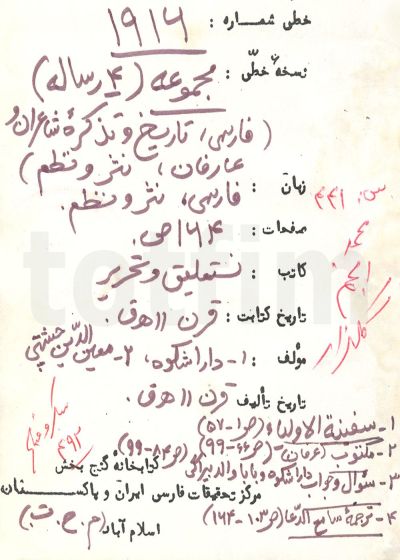 خطی شماره : ۱۹۱۶
نسخهٔ خطّی : مجموعه (۴ رساله)
(فارسی، تاریخ و تذکرهٔ شاعران و
عارفان، نثر و نظم)
زبان : فارسی، نثر و نظم.
س: ۴۴۱
صفحات : ۱۶۴ ص.
محمد
کاتب : نستعلیق و تحریر
انجم
تاریخ کتابت : قرن ۱۱ هـ ق.
گلزار
مؤلف : ۱- داراشکوه، ۲- معین‌الدین چشتی
تاریخ تألیف قرن ۱۱ هـ ق.
۴۹۲
۱- سفینة الاولیاء (ص ۱-۵۷)
۲- مکتوب (عرفان- ص ۶۶-۹۹)
۳- سؤال و جواب داراشکوه و بابا والد بیراگی (ص ۸۴-۹۹)
کتابخانهٔ گنج بخش
مرکز تحقیقات فارسی ایران و پاکستان
۴- ترجمهٔ (ص ۱۰۳-۱۶۴)
اسلام آباد
totfim